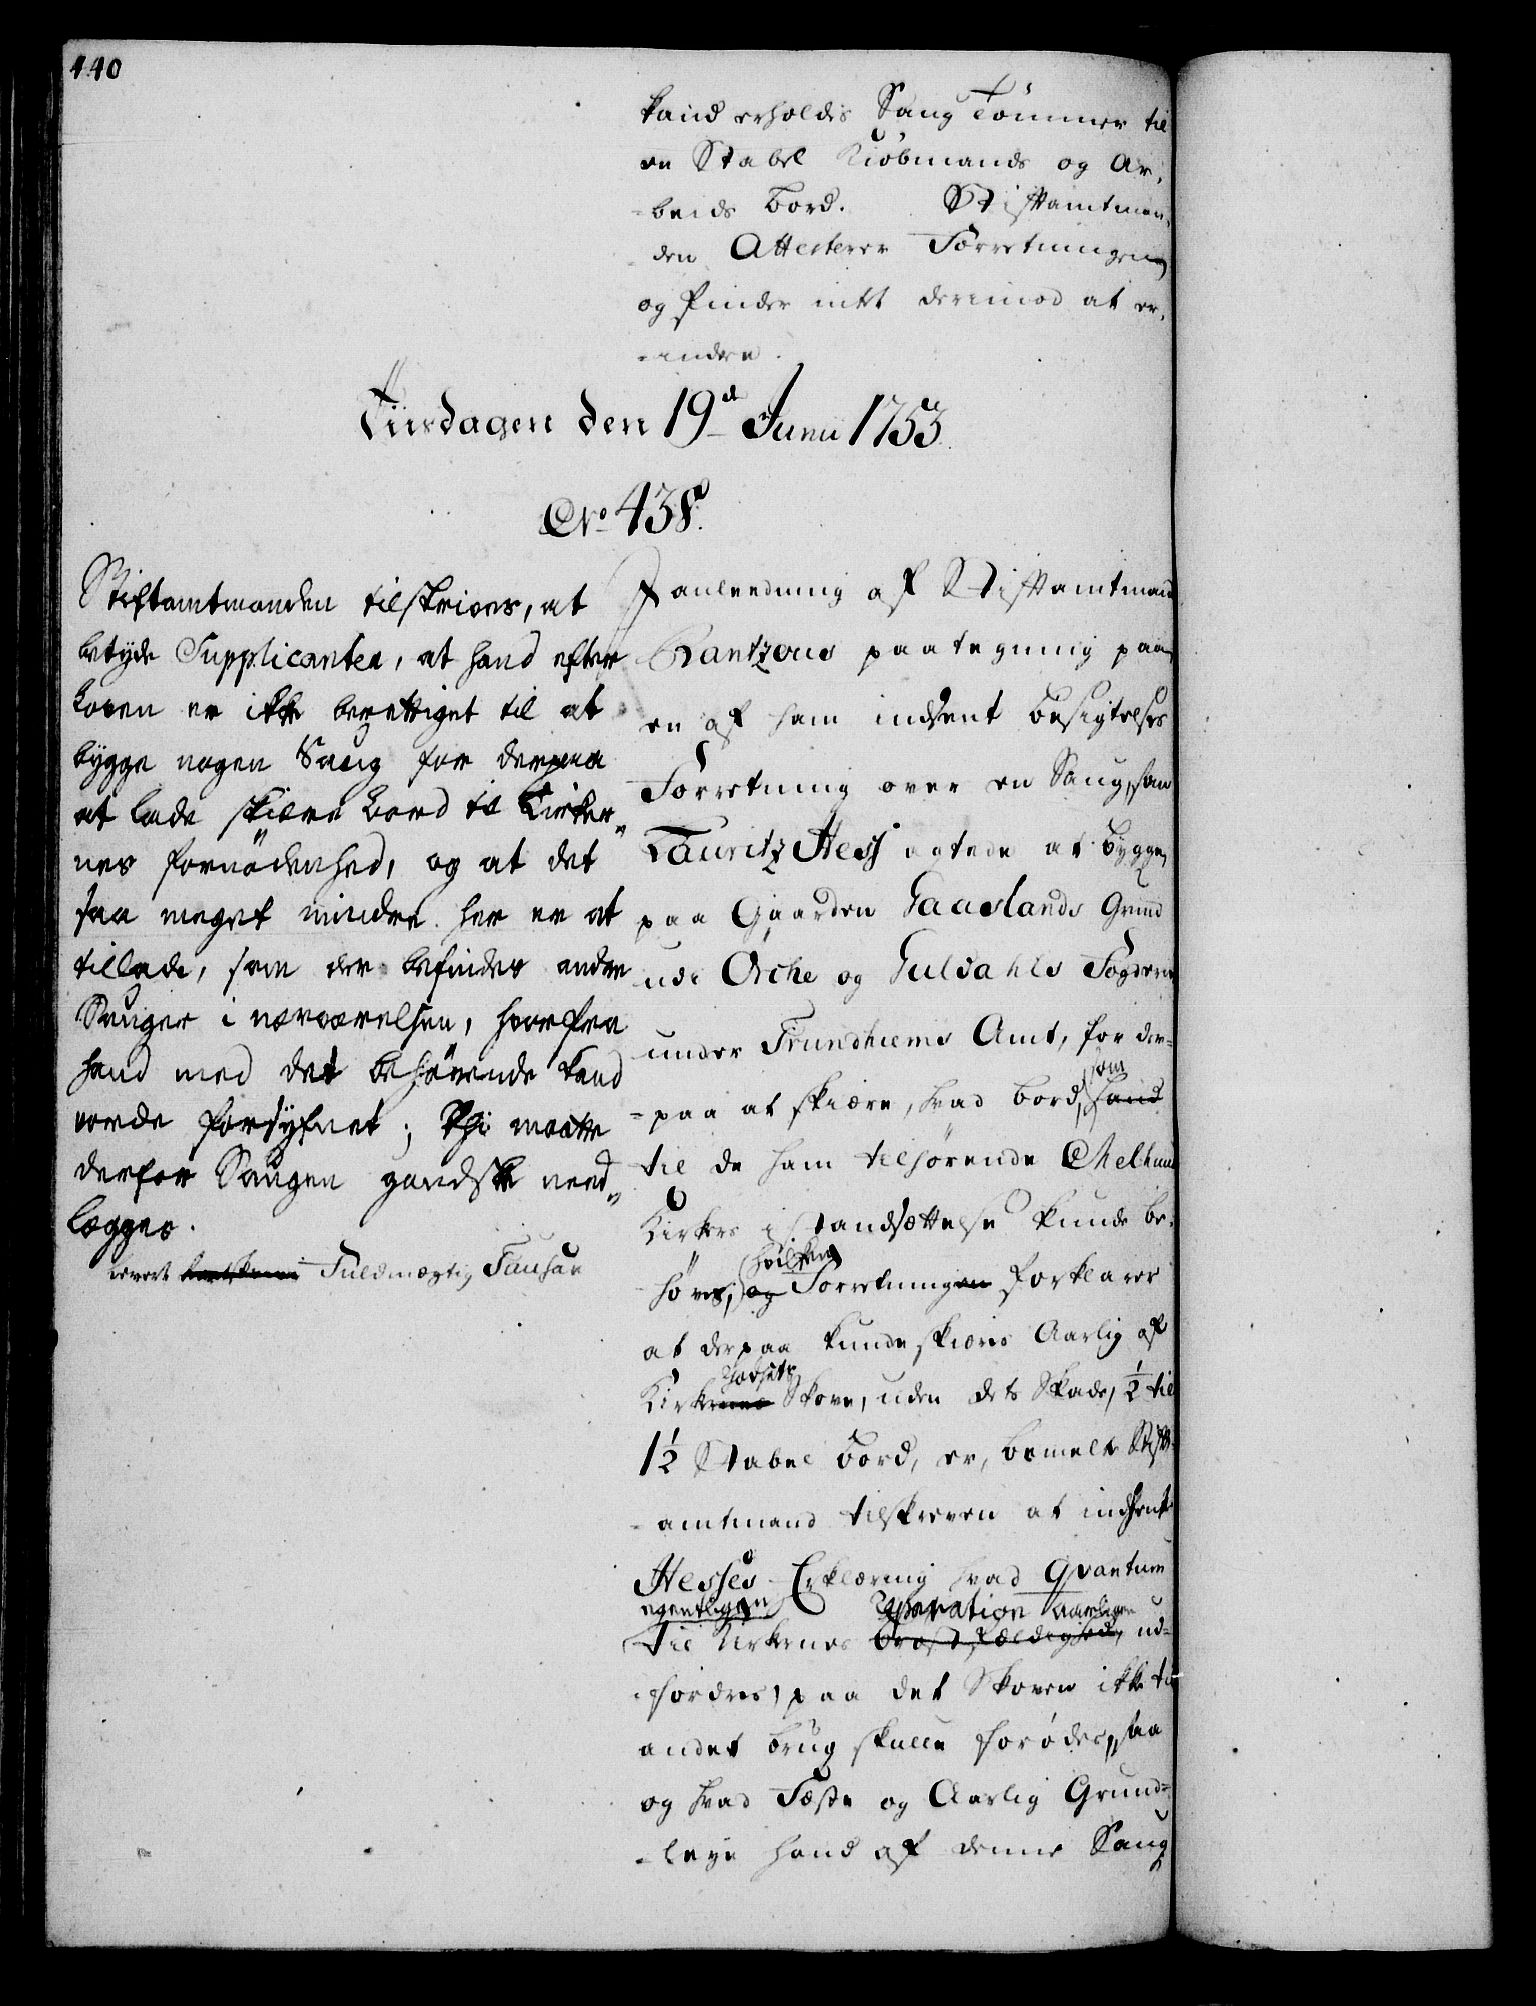 440
kand erholdes Saug Tömmer til
en Stabel Kiöbmands og Ar-
-beids Bord. Stiftamtman-
-den Attesterer Forretningen
og finder intet derimod at er-
-indre.
Tiirsdagen den 19d Junii 1753.
No 438.
Stiftamtmanden tilskrives, at
betyde Supplicanten, at hand efter
Loven er ikke berettiget til at
bygge nogen Saug for derpaa
at lade skiære Bord til Kirker-
nes fornödenhed, og at det
saa meget mindre her er at
tillade, som der befindes andre
Sauger i nærværelsen, hvorfra
hand med det behövende kand
vorde forsyfnet; Thi maatte
derfor Saugen gandske need-
lægges.
levert Fuldmægtig
I anleedning af Stiftamtmand
Rantzous paategning paa
en af ham indsent Besigtelses
Forretning over en Saug, som
Lauritz Hess agtede at bygge
paa Gaarden Gaaslands Grund
udi Örche og Guldahls Fogderie
under Trundhiems Amt, for der-
-paa at skiære, hvad Bord, som
hand
til de ham tilhörende Melhuus
Kirkers istandsættelse kunde be-
höves, og hvilken Forretningen forklarer
at derpaa kunde skiæres Aarlig af
Kirkernes Skove, uden dets Skade, 1/2 til
1 1/2 Stabel Bord, er, bemelte Stift-
-amtmand tilskreven at indhente
Hesses Erklæring hvad Qvantum
egentligen Reparation aarligen
til Kirkernes Bröstfældighed, ud-
-fordres, paa det Skoven ikke til
andet brug skulle forödes, saa
og hvad Fæste og Aarlig Grund-
-leye hand af denne Saug